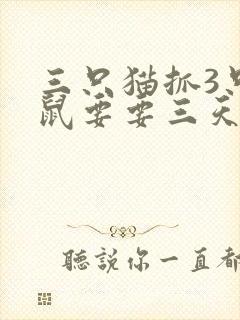 三只猫抓3只
鼠要要三天
聽説你一直都